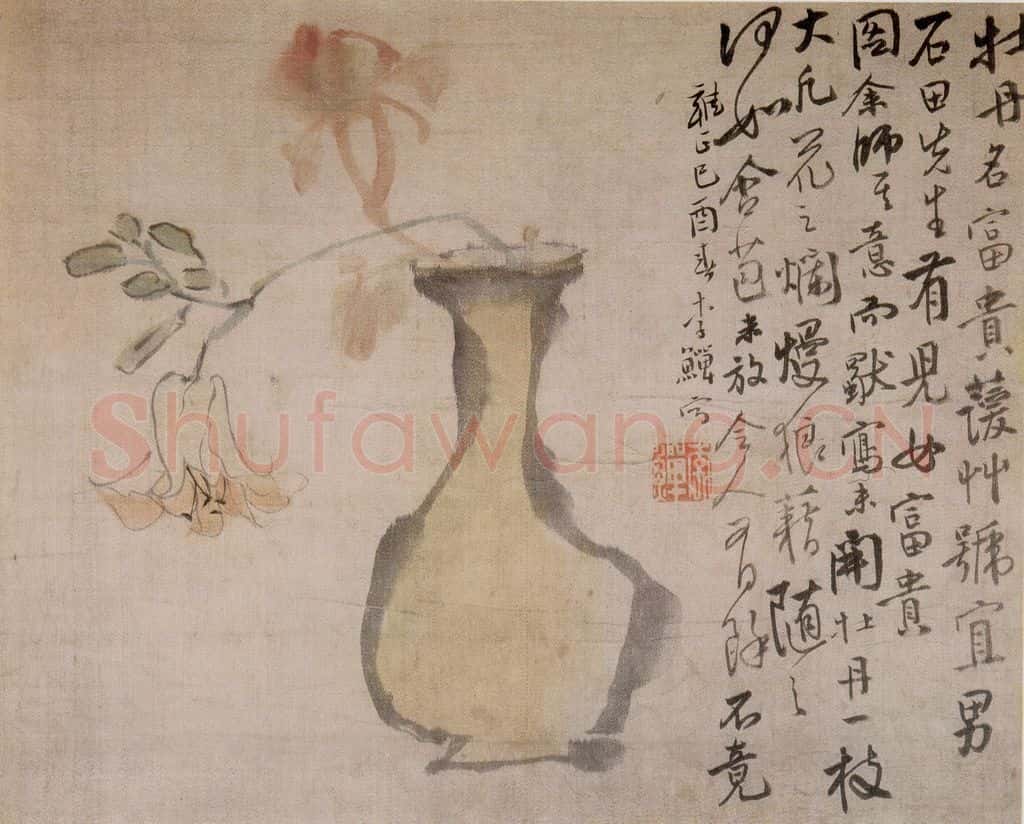 牡丹名富貴蘐艸號宜男
石田先生有兒女富貴
圖余師其意而寫未開牡丹一枝
大凡花之爛熳狼藉隨之
何如含苞未放令人餘不竟
雍正己酉春李鱓寫
Shufawang.CN